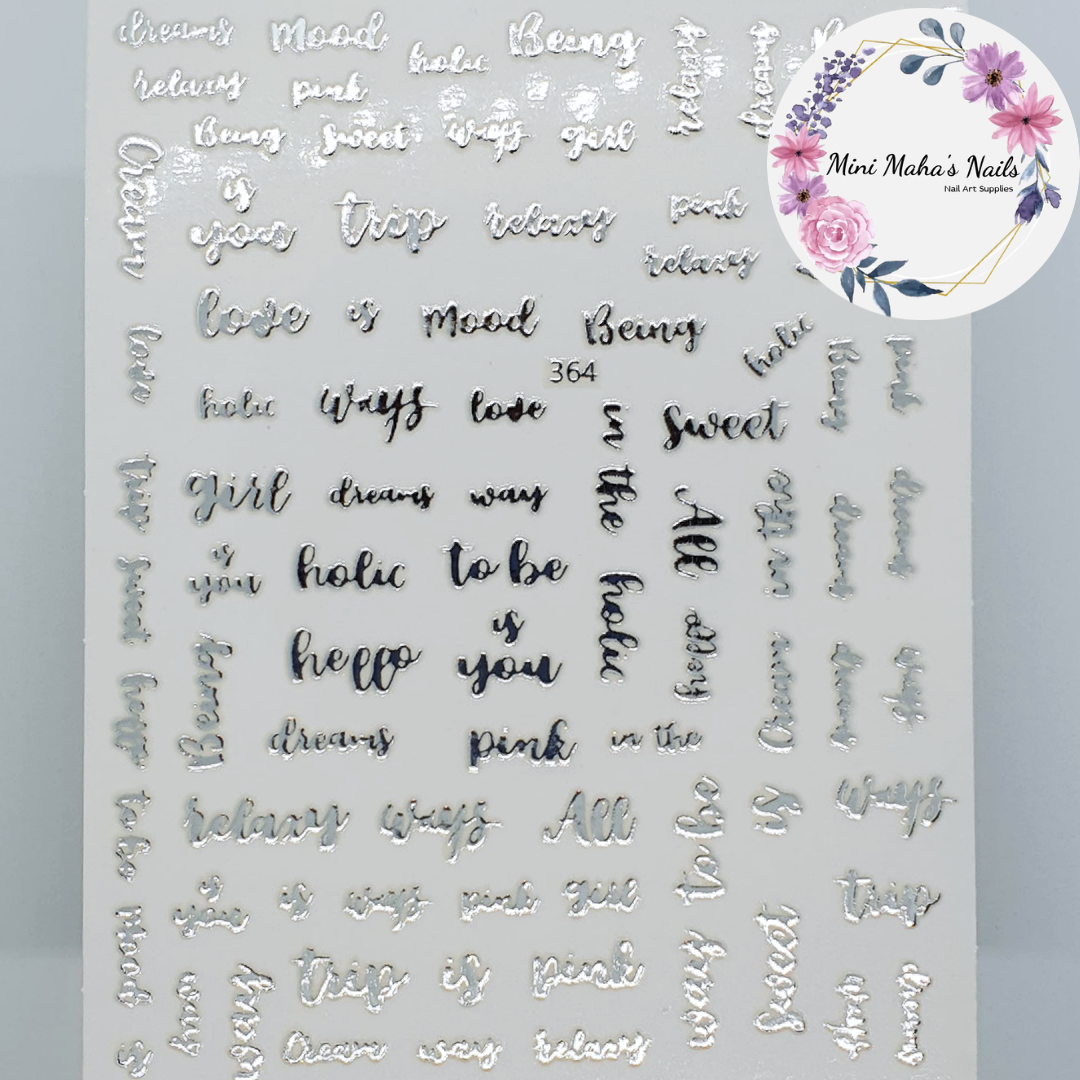 dreams Mood holic Being relaxy dreams
relaxy pink
Being sweet ways girl
Mini Maha's Nails
Nail Art Supplies
Cream is you trip relaxy pink
relaxy
love is Mood Being holic
364
holic ways love in the sweet Being pink
trip girl dreams way All in the dreams dreams
sweet is you holic to be holic hello
hello Being hello is you Cream dreams ways
dreams pink in the
to be relaxy ways All to be is ways
is you is ways pink girl trip
Mood way trip is pink way sweet
is Cream way relaxy